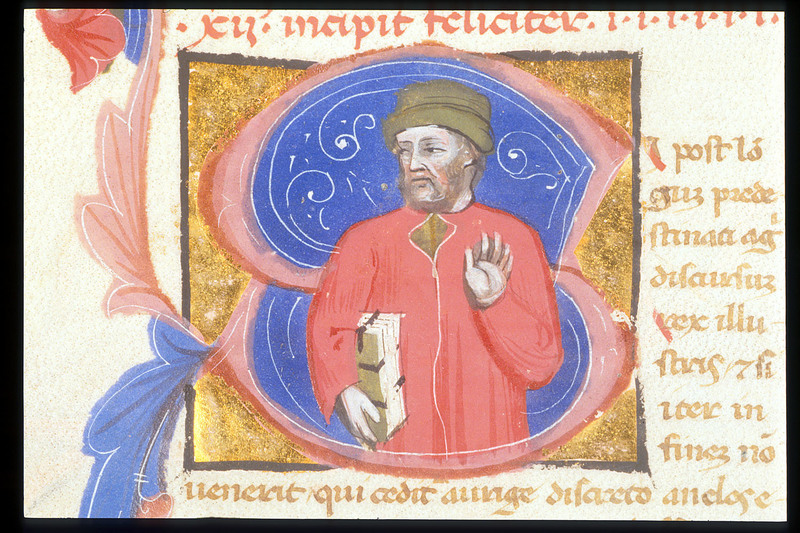 .xij. incipit feliciter. i.i.i.i.i.i.
post lō
guz prede
stinati ag
discursuz
rex illu
stris 7 si
iter in
finez nō
uenerit qui cedit aurige discreto